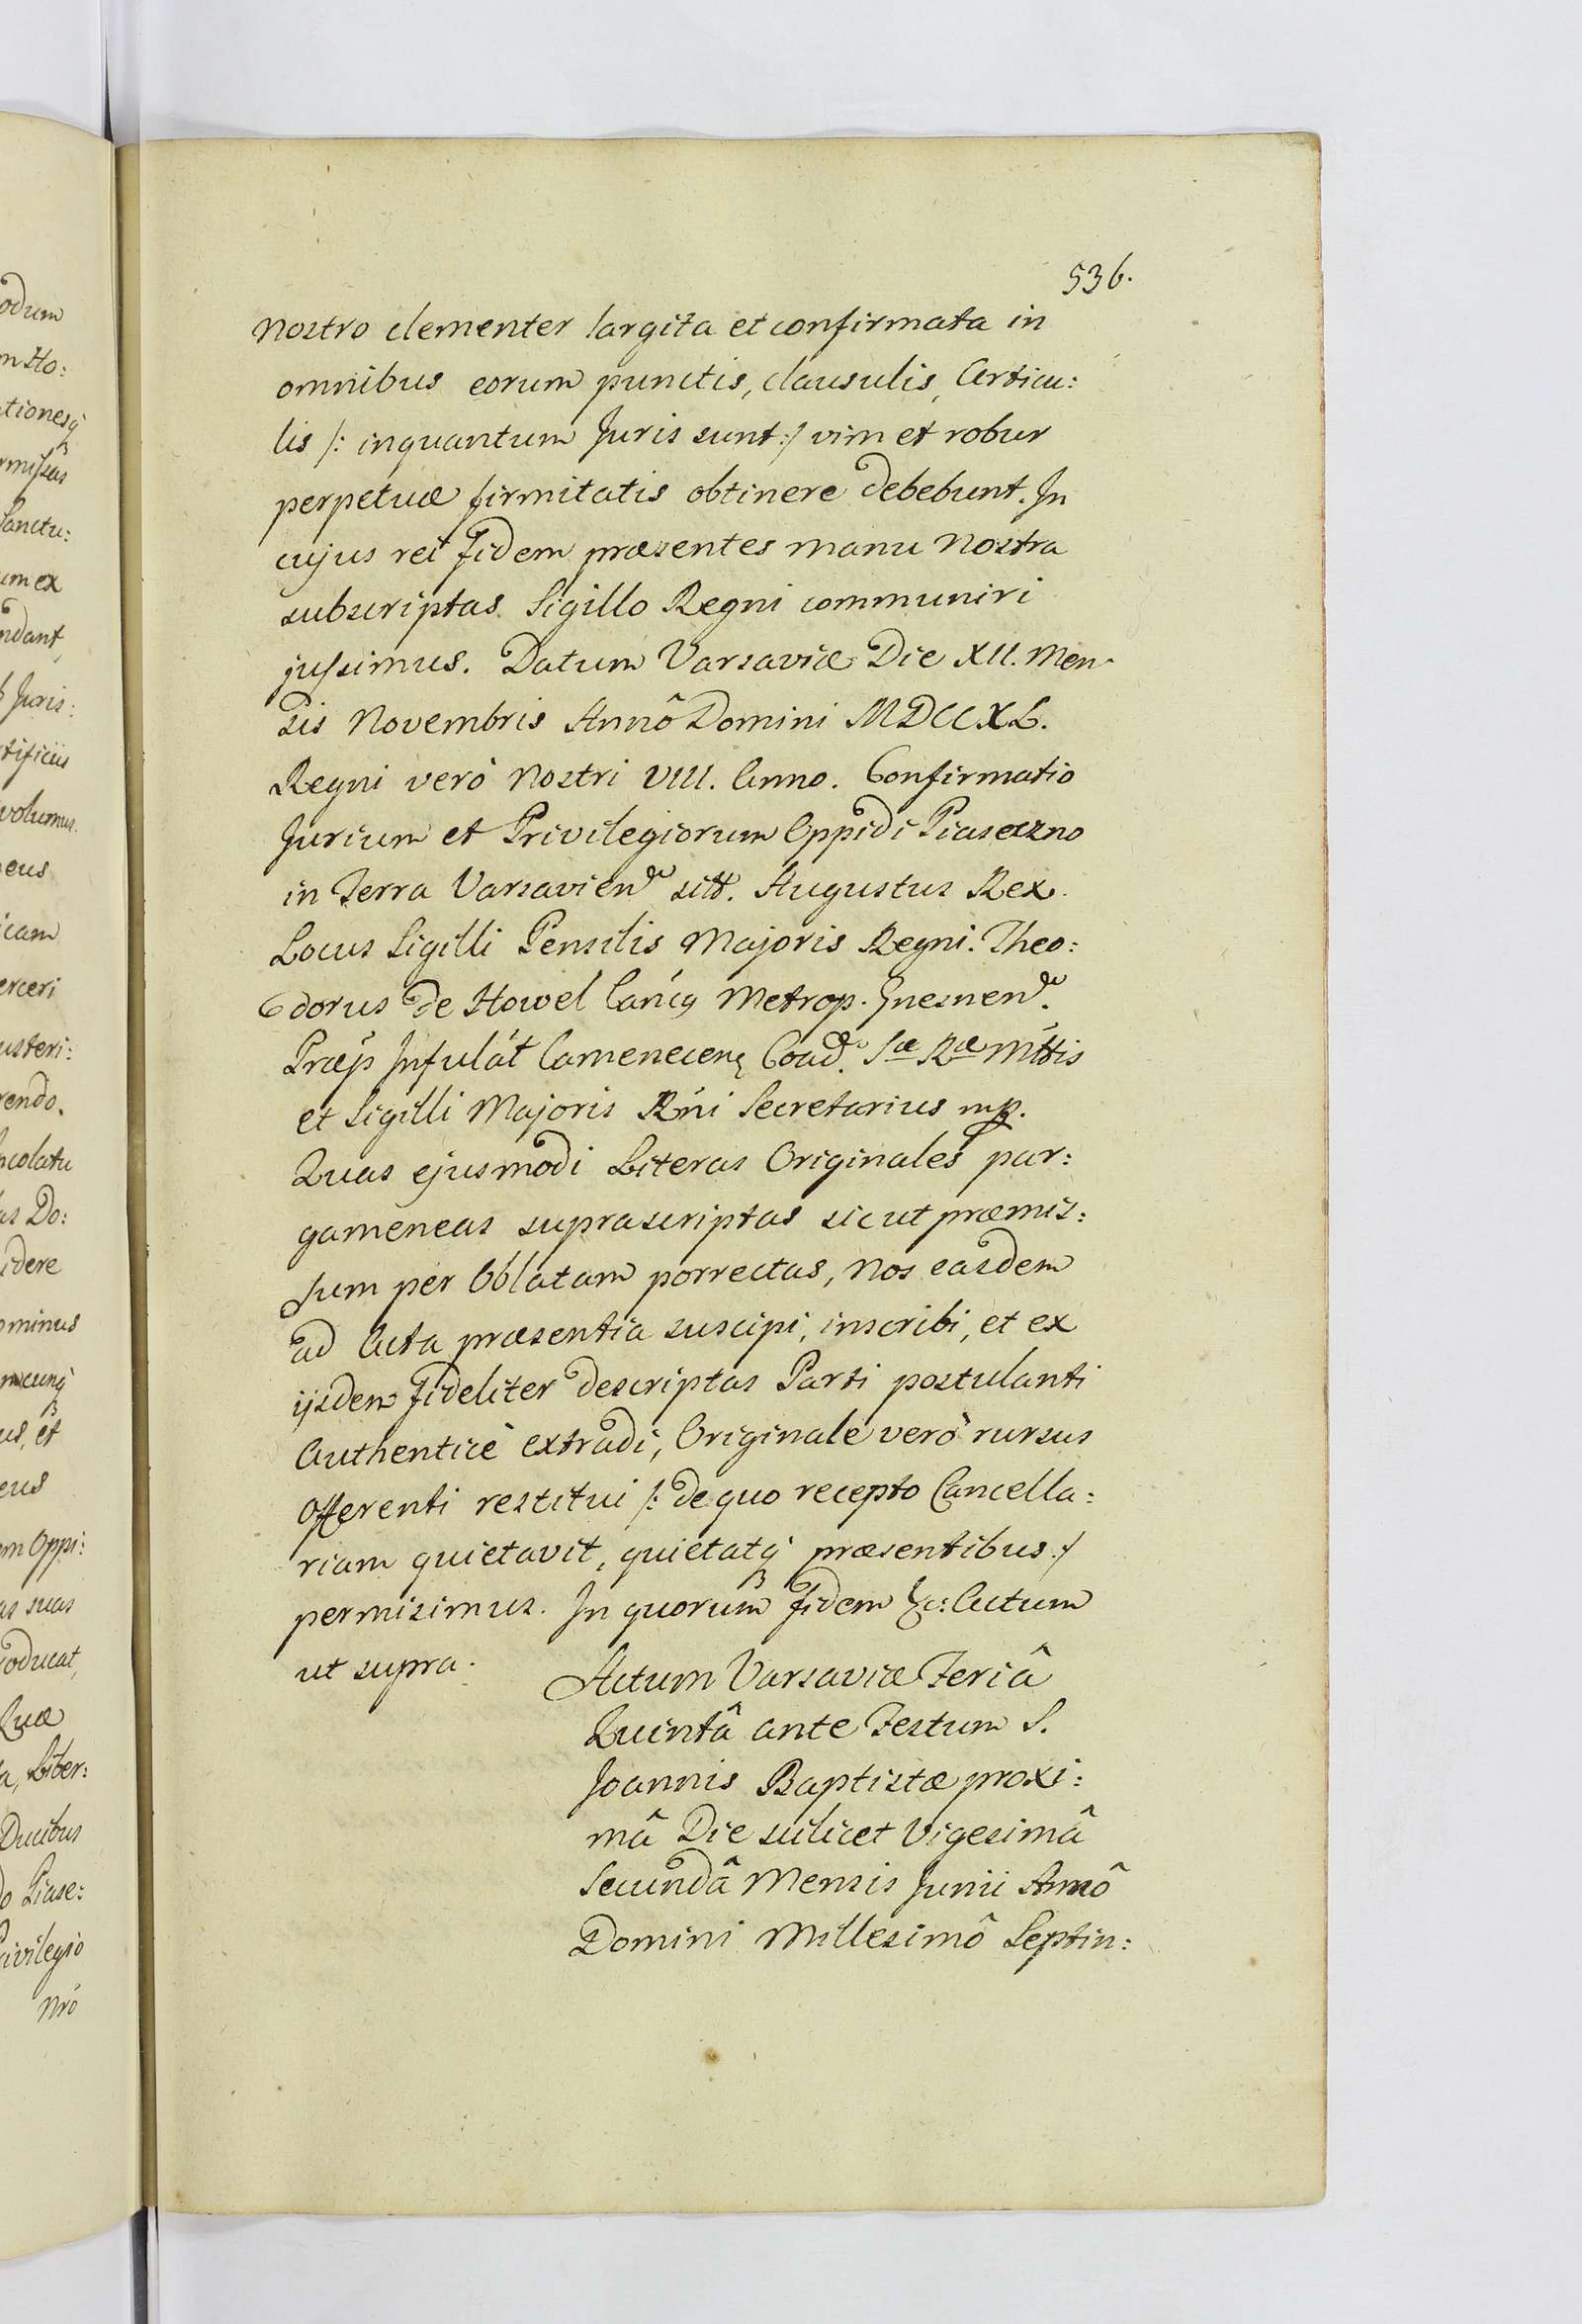 536.
nostro clementer largita et confirmata in
omnibus eorum punctis, clausulis, Articu:
lis /: inquantum Juris sunt :/ vim et robur
perpetuæ firmitatis obtinere debebunt. In
cujus rei fidem præsentes manu Nostra
subscriptas Sigillo Regni communiri
jussimus. Datum Varsaviæ Die XII. Men-
sis Novembris Annô Domini MDCCXL.
Regni verò Nostri VIII. Anno. Confirmatio
Jurium et Privilegiorum Oppidi Piaseczno
in Terra Varsavien. sitt. Augustus Rex.
Locus Sigilli Pensilis Majoris Regni. Theo:
dorus de Howel Metrop. Gnesnen.
Præp Infulat Camenecen Coad. Sæ Ræ Mttis
et Sigilli Majoris Rni Secretarius mp.
Quas ejusmodi Literas Originales par:
gameneas suprascriptas sicut præmis:
sum per Oblatam porrectas, nos easdem
ad Acta præsentia suscipi, inscribi, et ex
ijsdem fideliter descriptas Parti postulanti
Authenticè extradi, Originale verò rursus
Offerenti restitui /: de quo recepto Cancella:
riam quietavit, quietatq præsentibus :/
permisimus. In quorum fidem &c: Actum
ut supra.
Actum Varsaviæ Feriâ
Quintâ ante Festum S.
Joannis Baptistæ proxi:
mâ Die scilicet Vigesimâ
Secundâ Mensis Junii Annô
Domini Millesimô Septin: